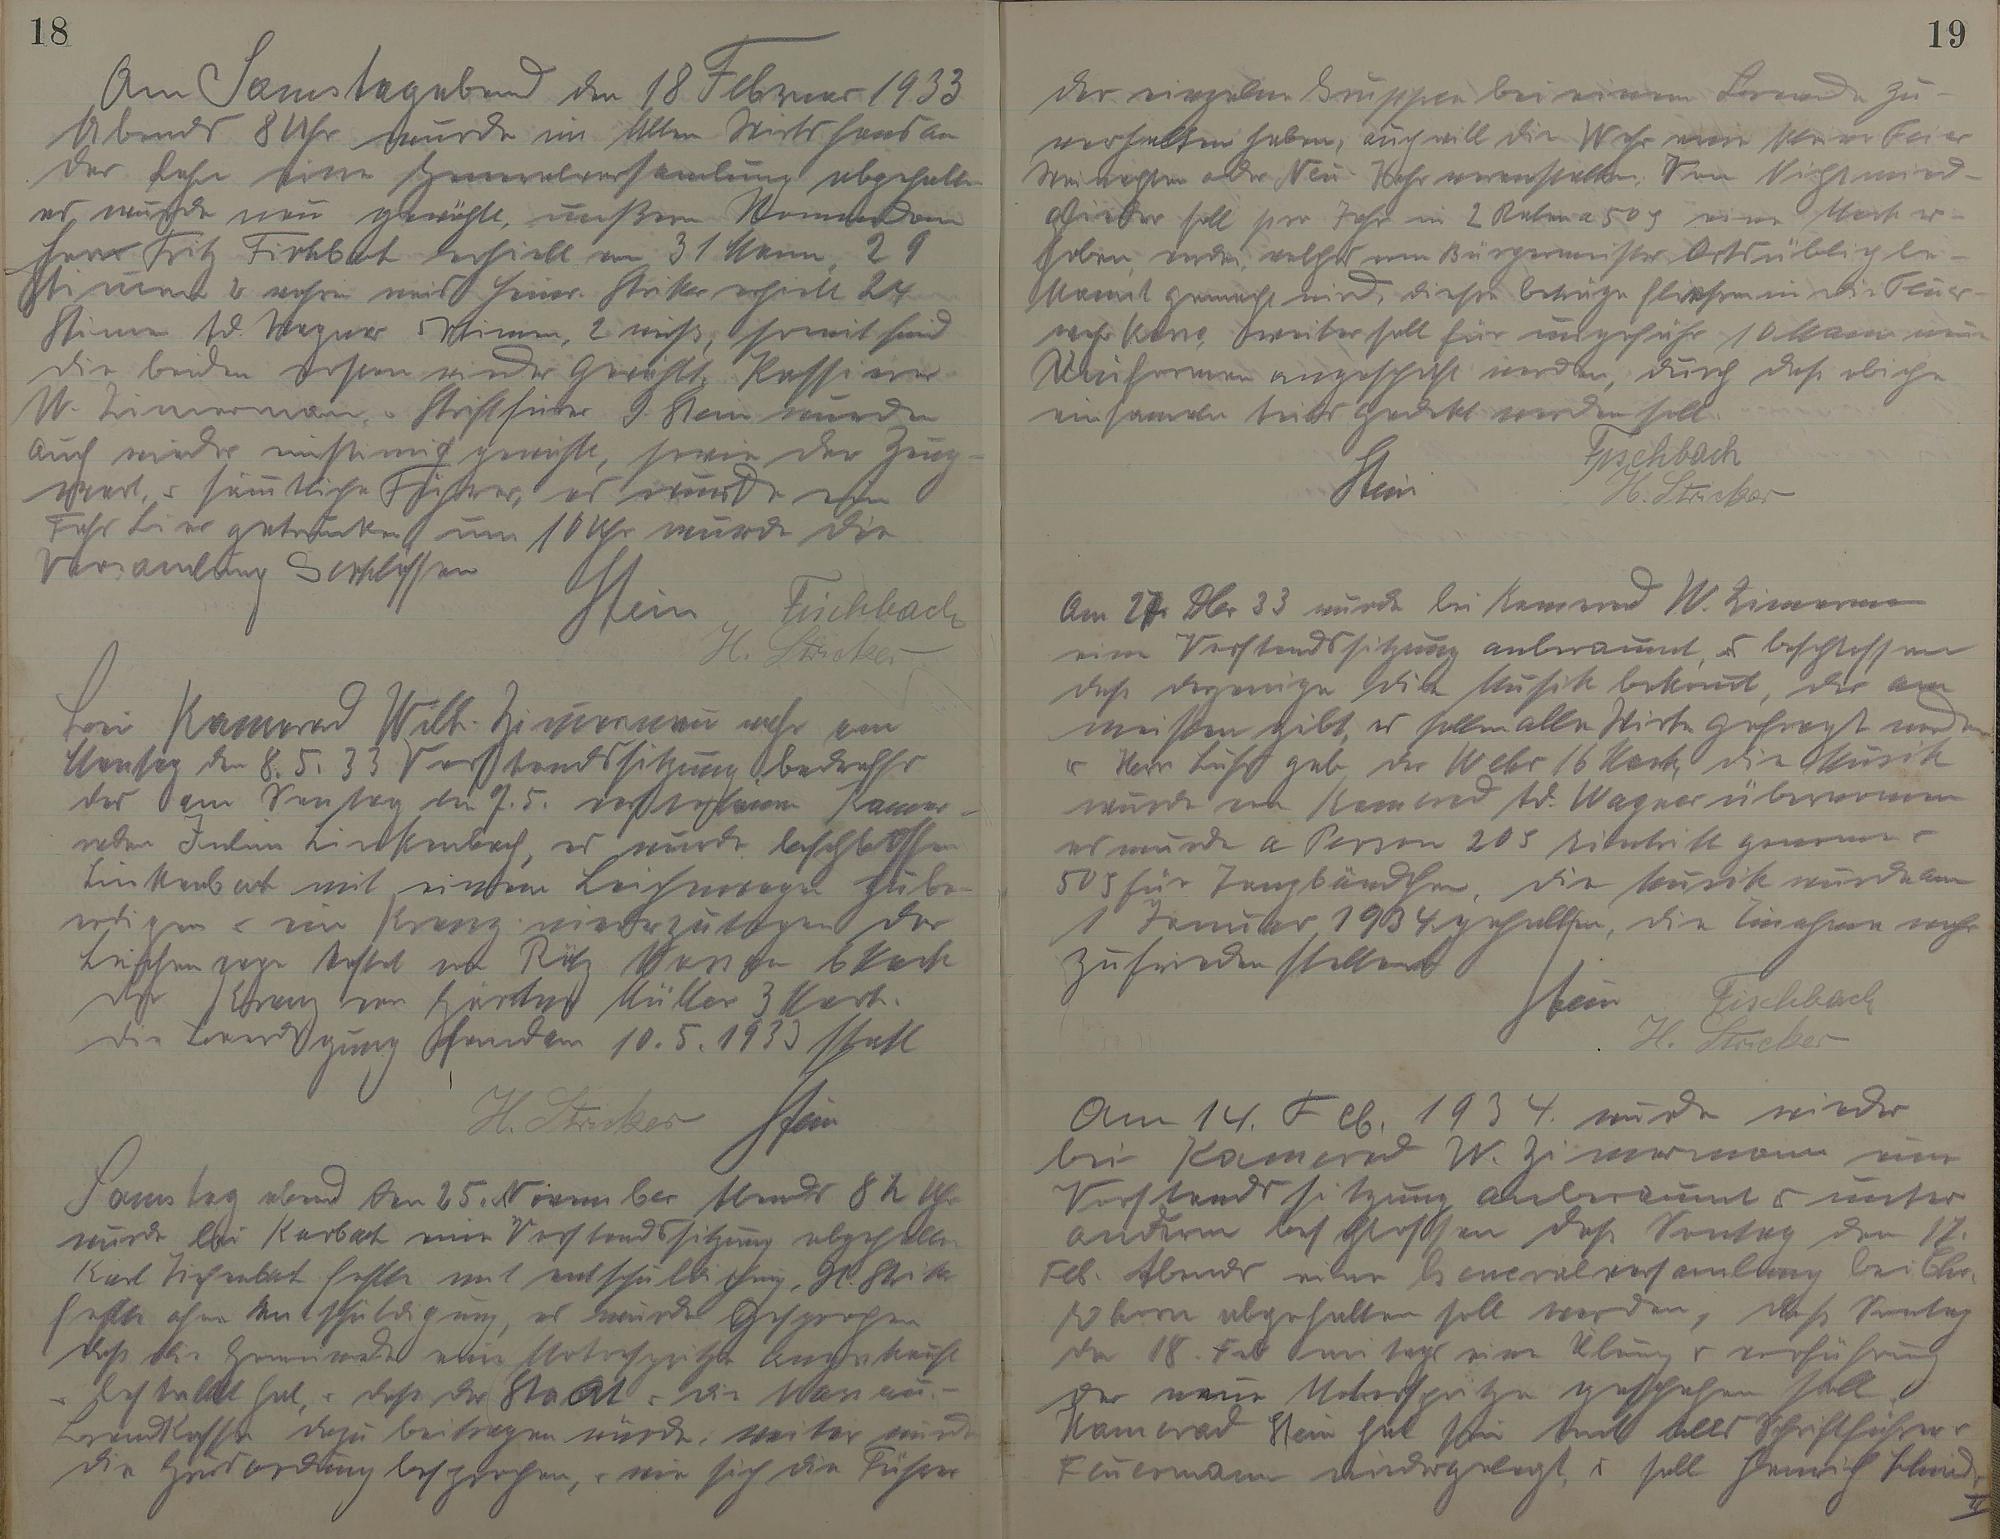 18
Am Samstagabend den 18 Februar 1933
Abends 8 Uhr wurde im Alten Wirtshaus an
der Lahn eine Generalversamlung abgehalten
es wurde neu gewählt, unßern
Herr Fritz Fischbach erhielt von 31 Mann, 29
Stimen 2 wahren weis Heinr. Striker erhielt 24
Stimen Ad. Wagner 5 Stimen, 2 weiß, somit sind
die beiden ersten wieder Gewählt, Kassierer
W. Zimerman, u Schriftfürer J. Stein wurden
auch wieder einstimig gewählt, sowie der Zeug-
wart, u sämtliche Führer, es wurde ein
Faß Bier getrunken um 10 Uhr wurde die
Versamlung Geschlossen
Stein Fischbach
H. Stricker
Bei Kamerad Wilh. Zimerman wahr am
Montag den 8.5.33 Vorstandssitzung betrefs
des am Sontag den 7.5. verstorbenen Kamer-
raden Julius Linkenbach, es wurde beschlossen
Linkenbach mit einem Leichenwagen zube-
erdigen u ein Kranz niederzulegen der
Leichenwagen kostet von 6 Mark
der Kranz von Gärtner Müller 3 Mark.
die Beerdigung fand am 10.5.1933 statt
H. Stricker Stein
Samstag abend den 25. November Abends 8 ½ Uhr
wurde bei Karbach eine Vorstandssitzung abgehalten
Karl fehlte mit entschuldigung, H. Strike
fehlte ohne Entschuldigung, es wurde Gesprochen
daß die Gemeinde eine Motorspritze angekauft
u bestellt hat, u daß der Staat u die Nassau.-
Brandkasse dazu beitragen würde, weiter wurde
die besprochen, u wie sich die Führer
19
der einzelne Gruppen bei einem Brande zu-
verhalten haben, auch will die Wehr eine kleine Feier
Weinachten oder Neu Jahr veranstalten. Von Nichtmied-
glieder soll pro Jahr in 2 Raten a 50 ₰ eine Mark er-
hoben werden, welches vom Bürgermeister Ortsüblich be-
kannt gemacht wird, diese beträge fliehsen in die Feuer-
wehr Kasse, weiter soll für ungefähr 10 Mann neue
Uniformen angeschaft werden, durch daß obige
einsameln teils gedekt werden soll.
Stein Fischbach
H. Stricker
Am 27. Dber 33 wurde bei Kamerad W. Zimerman
eine Vorstandssitzung anberaumt, u beschlossen
daß derjenige die Musik bekomt, der am
meisten gibt, es sollen alle Wirte gefragt werden
u Herr gab der Wehr 16 Mark, die Musik
wurde von Kamerad Ad. Wagner übernomen
es wurde a Person 20 ₰ Eintritt genomen u
50 ₰ für Tanzbändchen, die Musik wurde am
1 Januar 1934 gehalten, die Einahme wahr
zufriedenstellend
Stein Fischbach
H. Stricker
Am 14. Feb. 1934. wurde wieder
bei Kamerad W. Zimermann eine
Vorstandssitzung anberaumt u unter
anderm beschlossen daß Sontag den 17.
Feb. Abends eine Generalversamlung bei Chr.
abgehalten soll werden, daß Sontag
den 18. Feb mitags eine Übung u vorführung
der neue Motorspritze geschehen soll.
Kamerad Stein hat sein Amt alls Schriftführer u
Feuermann niedergelegt, u soll Heinrich Schmidt
II